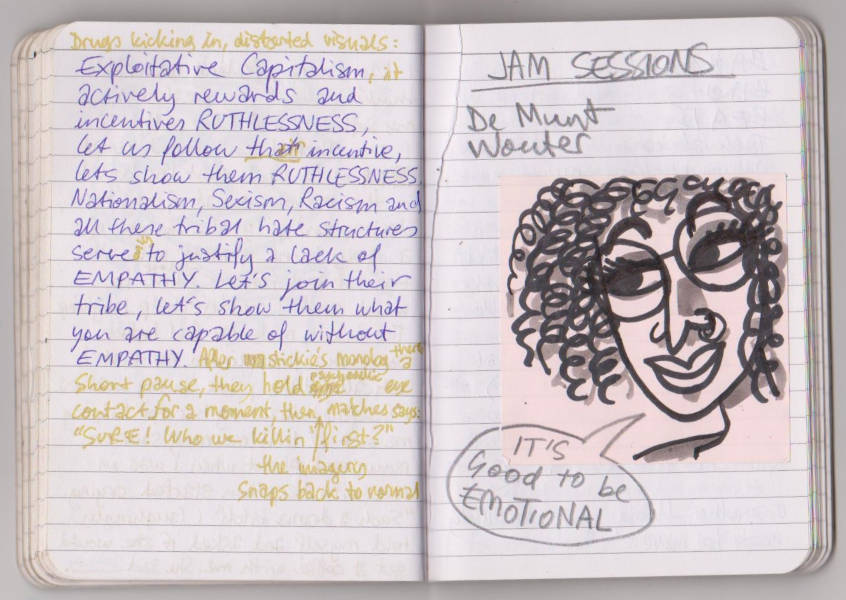 Drugs kicking in, distorted visuals:
Exploitative Capitalism, it
actively rewards and
incentives RUTHLESSNESS,
let us follow incentive,
lets show them RUTHLESSNESS
Nationalism, Sexism, Racism and
all these tribal hate structures
serve to justify a lack of
EMPATHY. Let's join their
tribe, let's show them what
you are capable of without
EMPATHY. After stickie's monolog there
short pause, they hold psychedelic eye
contact for a moment, then, matches says:
"SURE! Who we killin first?"
the imagery
snaps back to normal
JAM SESSIONS
De Munt
Wouter
IT'S
Good to be
EMOTIONAL